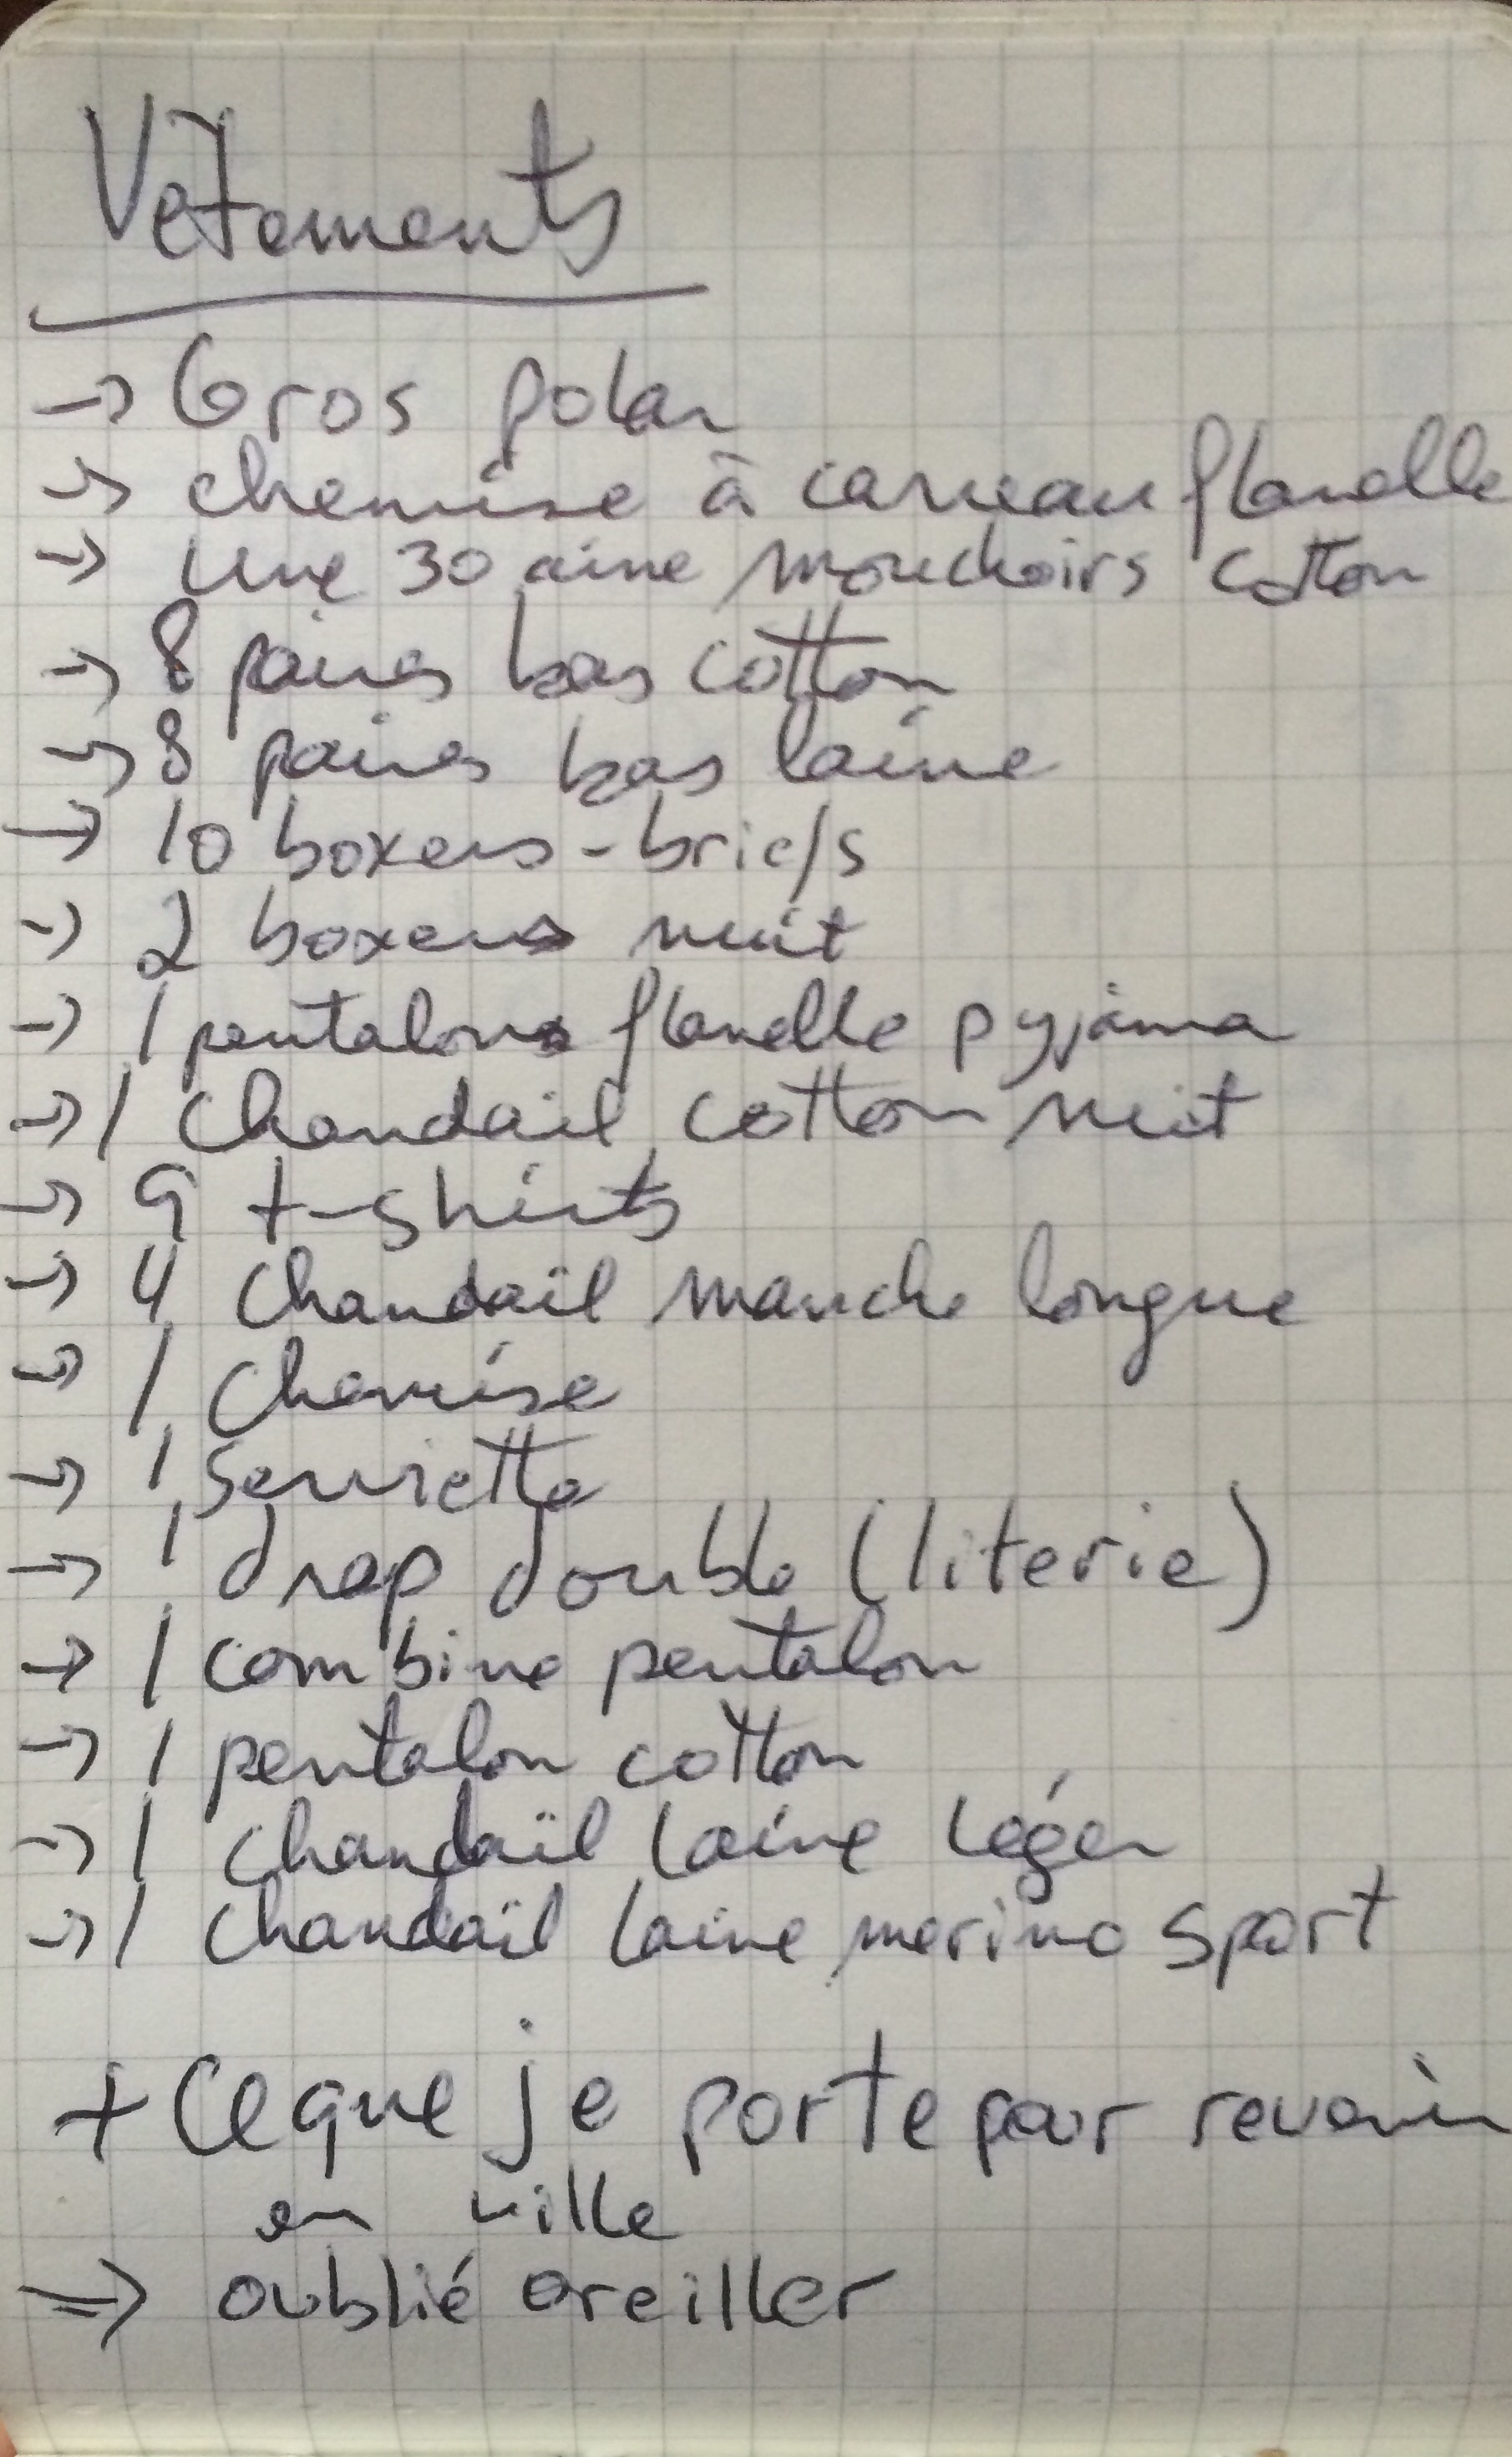 Vêtements
→ Gros polar
→ chemise à carreau flanelle
→ Une 30aine mouchoirs cotton
→ 8 paires bas cotton
→ 8 paires bas laine
→ 10 boxers-briefs
→ 2 boxers nuit
→ 1 pentalons flanelle pyjama
→ 1 chandail cotton nuit
→ 9 t-shirts
→ 4 chandail manche longue
→ 1 chemise
→ 1 serviette
→ 1 drap double (literie)
→ 1 combine pentalon
→ 1 pentalon cotton
→ 1 chandail laine léger
→ 1 chandail laine merino sport
+ Ce que je porte pour revenir
en ville
⇒ oublié oreiller